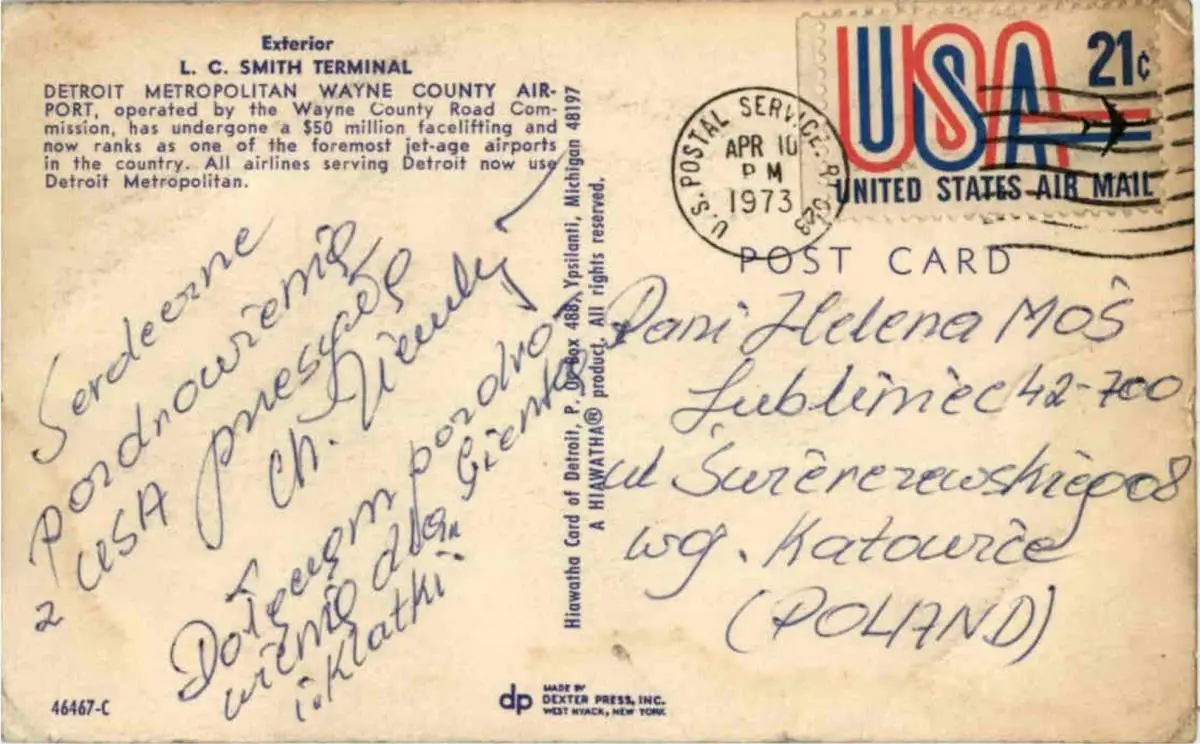 Exterior
L. C. SMITH TERMINAL
DETROIT METROPOLITAN WAYNE COUNTY AIR-
PORT, operated by the Wayne County Road Com-
mission, has undergone a $50 million facelifting and
now ranks as one of the foremost jet-age airports
in the country. All airlines serving Detroit now use
Detroit Metropolitan.
Serdeczne
pozdrowienia
z USA przesyła
Ch.
Dołączam pozdro-
wienia dla Gienka
i "Klatki"
46467-C
Hiawatha Card of Detroit, P. O. Box 488, Ypsilanti, Michigan 48197
A HIAWATHA® product. All rights reserved.
dp
MADE BY
DEXTER PRESS, INC.
WEST NYACK, NEW YORK
USA 21c
UNITED STATES AIR MAIL
U.S. POSTAL SERVICE
APR 10
PM
1973
POST CARD
Pani Helena Moś
Lubliniec 42-700
ul Świerczewskiego 8
wg. Katowice
(POLAND)